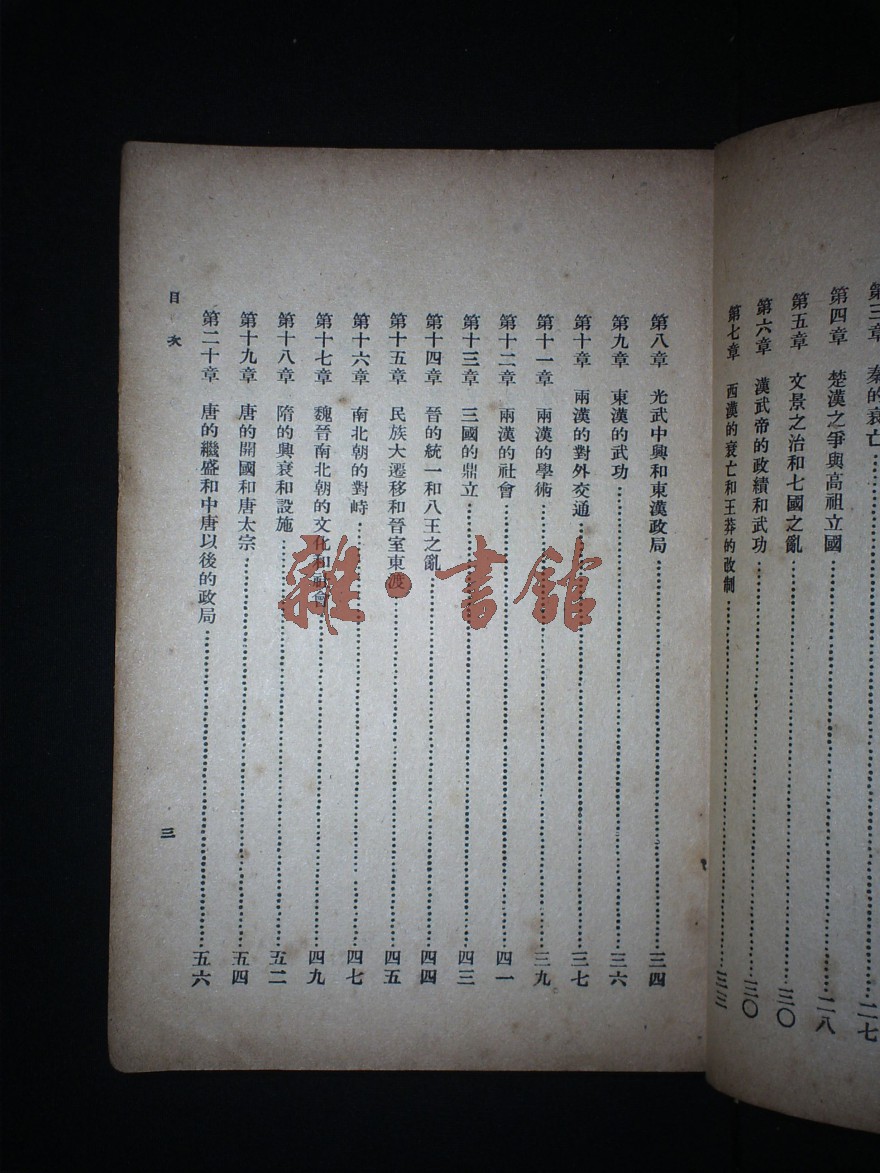 第三章　秦的衰亡……二七
第四章　楚漢之爭與高祖立國……二八
第五章　文景之治和七國之亂……三〇
第六章　漢武帝的政績和武功……三〇
第七章　西漢的衰亡和王莽的改制……三三
第八章　光武中興和東漢政局……三四
第九章　東漢的武功……三六
第十章　兩漢的對外交通……三七
第十一章　兩漢的學術……三九
第十二章　兩漢的社會……四一
第十三章　三國的鼎立……四三
第十四章　晉的統一和八王之亂……四四
第十五章　民族大遷移和晉室東渡……四五
第十六章　南北朝的對峙……四七
第十七章　魏晉南北朝的文化和社會……四九
第十八章　隋的興衰和設施……五二
第十九章　唐的開國和唐太宗……五四
第二十章　唐的繼盛和中唐以後的政局……五六
目次
三
雜·書館